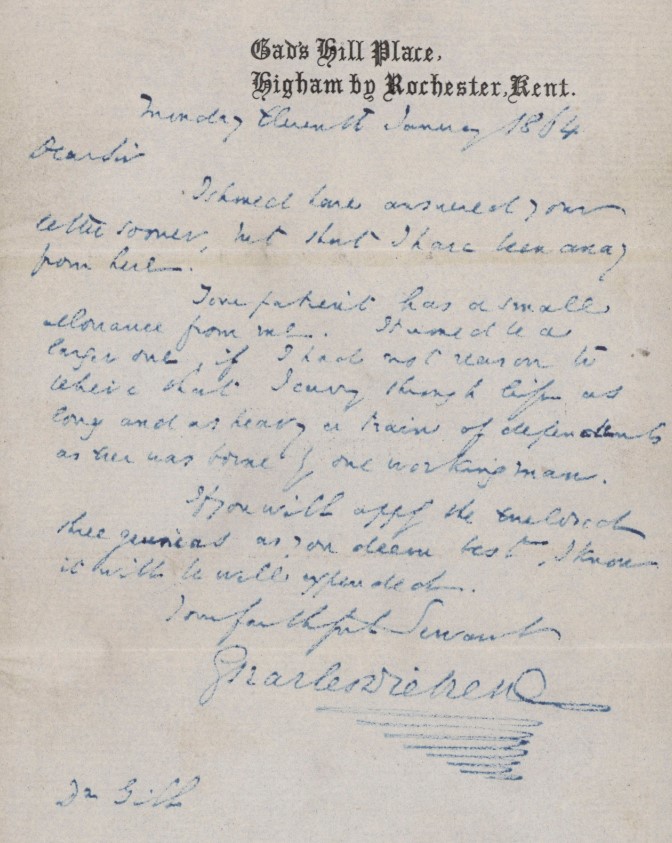 Gad's Hill Place,
Higham by Rochester, Kent.
Monday Eleventh January 1864
Dear Sir
I should have answered your
letter sooner, but that I have been away
from here.
Your patient has a small
allowance from me. It would be a
larger one, if I had not reason to
believe that I carry through life as
long and as heavy a train of dependents
as ever was borne by one working man.
If you will apply the enclosed
three guineas as you deem best, I know
it will be well expended.
Your faithful Servant
Charles Dickens
Dr Gill